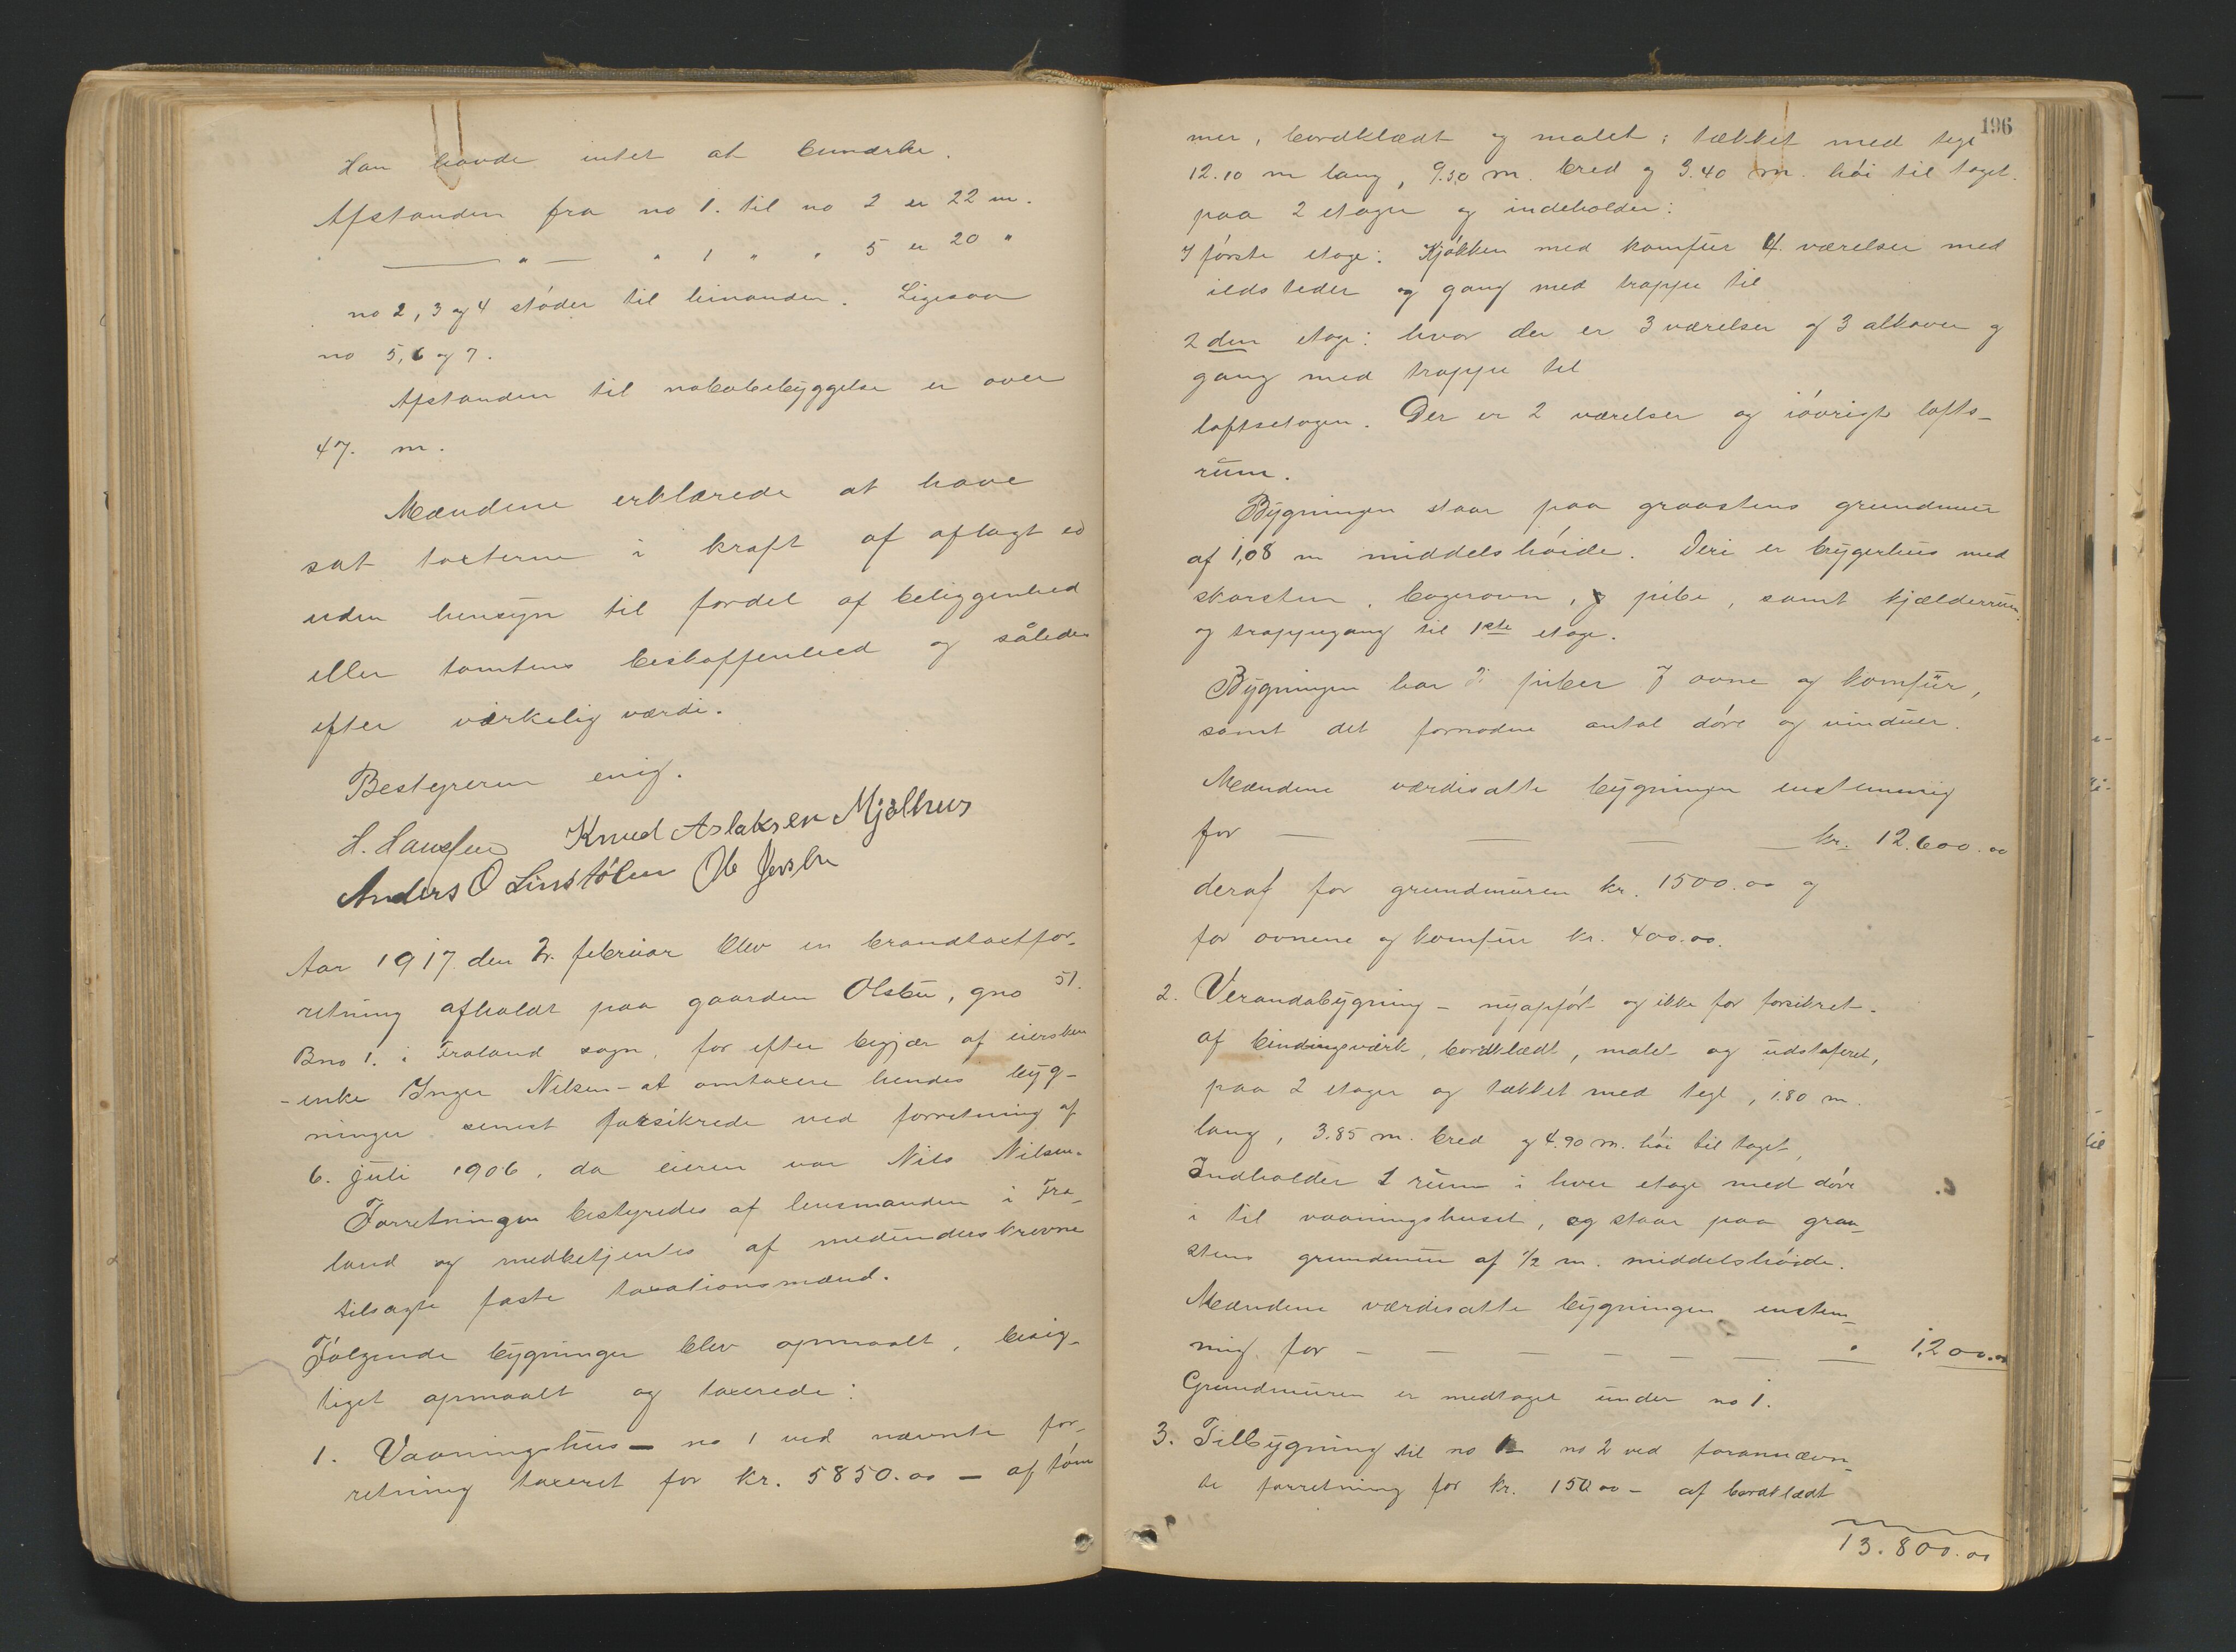 Han havde intet at bemærke.
Afstanden fra no 1. til no 2 er 22 m.
— " — " 1 " " 5 er 20 "
no 2, 3 og 4 støder til hinanden. Ligesaa
no 5, 6 og 7.
Afstanden til nabobebyggelse er over
47. m.
Mændene erklærede at have
sat taxterne i kraft af aflagt ed
uden hensyn til fordel af beliggenhed
eller tomtens beskaffenhed og således
efter virkelig værdi.
Bestyreren enig.
H. Hanssen Knud Aslaksen Mjålhus
Anders O Linstølen Ole
Aar 1917 den 2. februar blev en brandtaxtfor-
retning afholdt paa gaarden Olsbu, gno 51.
Bno 1. i Froland sogn, for efter begjær af eiersken
- enke Inger Nilsen - at omtaxere hendes byg-
ninger senest forsikrede ved forretning af
6. juli 1906, da eieren var Nils Nilsen.
Forretningen bestyredes af lensmanden i Fro-
land og medbetjentes af medunderskrevne
tilsagte faste taxationsmænd.
Følgende bygninger blev opmaalt, besig-
tiget opmaalt og taxerede:
1. Vaaningshus — no 1 ved nævnte for-
retning taxeret for kr. 5850.00 — af tøm
196
mer, bordklædt og malet; tækket med tegl
12.10 m lang, 9.30 m. bred og 3.40 m. høi til taget.
paa 2 etager og indeholder:
I første etage: Kjøkken med komfur 4 værelser med
ildsteder og gang med trappe til
2den etage: hvor der er 3 værelser og 3 alkover og
gang med trappe til
loftsetagen. Der er 2 værelser og iøvrigt lofts-
rum.
Bygningen staar paa graastens grundmur
af 1,08 m middelshøide. Deri er bryggerhus med
skorsten, bagerovn, og pibe, samt kjælderrum
og trappegang til 1ste etage.
Bygningen har piber 7 ovne og komfür,
samt det fornødne antal døre og vinduer.
Mændene værdisatte bygningen enstemmig
for — — — — kr. 12.600.00
deraf for grundmuren kr. 1500.00 og
for ovnene og komfur kr. 400.00.
2. Verandabygning - nyopført og ikke før forsikret -
af bindingsværk, bordklædt, malet og udstaferet,
paa 2 etager og tækket med tegl, 1.80 m.
lang, 3.85 m. bred og 4.90 m. høi til taget,
Indholder 1 rum i hver etage med døre
i til vaaningshuset, og staar paa graa-
stens grundmur af 1/2 m. middelshøide.
Mændene værdisatte bygningen enstem-
mig for — — — — — — " 1.200.00
Grundmuren er medtaget under no 1.
3. Tilbygning til no 1 - no 2 ved forannævn-
te forretning for kr. 150.00 - af bordklædt
13.800.00